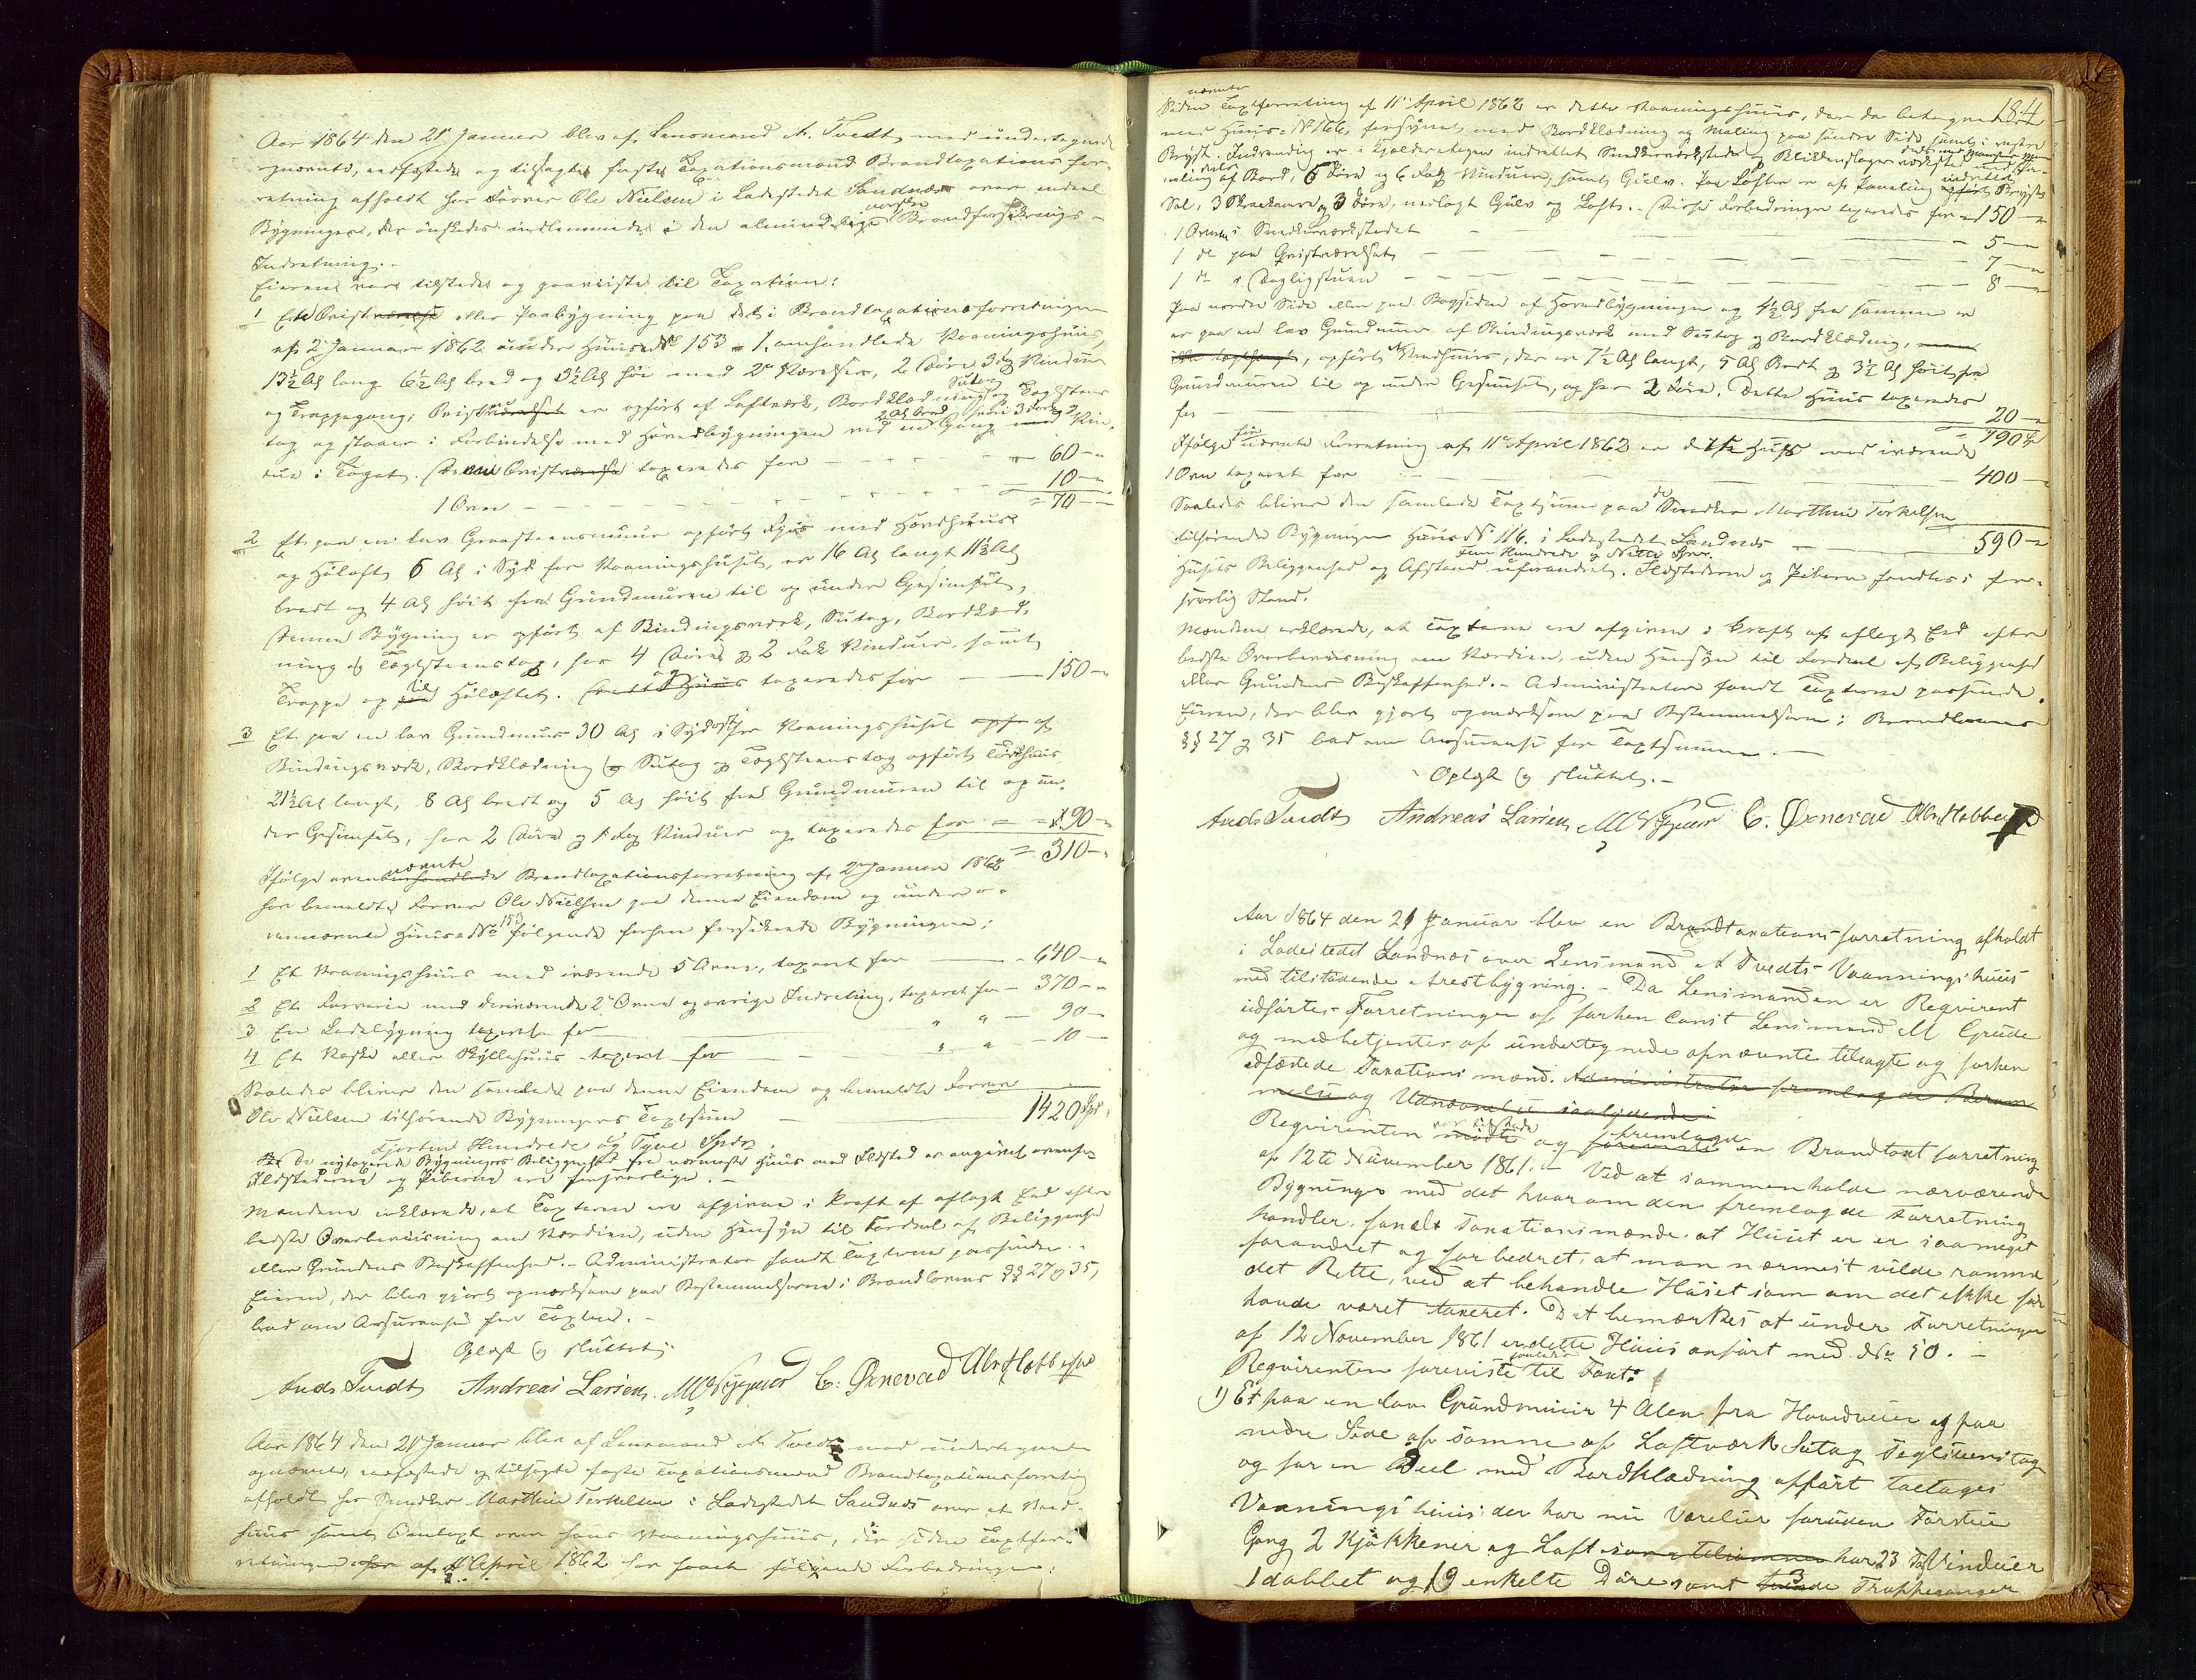 Aar 1864 den 21 Januar blev af Lensmand A. Tvedt med undertegnede
opnævnte, edfæstede og tilsagte faste Taxationsmænd Brandtaxations for-
retning afholdt hos Farver Ole Nielsen i Ladestedet Sandnæs over endeel
Bygninger, der önskedes indlemmede i den almindelige norske Brandforsikrings-
Indretning.-
Eieren var tilstede og paaviste til Taxation:
1 Et Qvistværelse eller Paabygning paa det i Brandtaxationsforretningen
af 2 Januar 1862 under Huus No 153 - 1, omhandlede Vaaningshuus,
13½ Al lang 6½ Al bred og 3½ Al höi med 2 Værelser, 2 Döre 3 Fag Vinduer
og Trappegang; Qvistværelset er opfört af Laftværk, Bordklædning Sutag og Teglsteens
tag og staaer i Forbindelse med Hovedbygningen ved en 2 Al bred Gang med Vin-
due i Taget. Denne Qvistværelse taxeredes for - 60 -
1 Ovn - 10 -
= 70 -
2 Et paa en lav Graasteensmuur opfört Fjøs med Hesthuus
og Höloft 6 Al i Syd for Vaaningshuset, er 16 Al langt 11½ Al
bredt og 4 Al höit fra Grundmuren til op under Gesimset,
Denne Bygning er opfört af Bindingsværk, Sutag, Bordklæd-
ning og Teglsteenstag, har 4 Döre og 2 Fag Vinduer, samt
Trappe op til Höloftet. Dette Huus taxeredes for - 150 -
3 Et paa en lav Grundmuur 30 Al i Sydost for Vaaningshuset af
Bindingsværk, Bordklædning og Sutag og Teglsteenstag opfört Törkhuus
21½ Al langt, 8 Al bredt og 5 Al höit fra Grundmuren til op un-
der Gesimset, har 2 Döre og 1 Fag Vinduer og taxeredes for - 90 -
= 310 -
Ifölge ovennævnte Brandtaxationsforretning af 2 Januar 1862
har bemeldte Farver Ole Nielsen paa denne Eiendom og under
Huus No 153 fölgende forhen forsikrede Bygninger:
1 Et Vaaningshuus med iværende 5 Ovne, taxeret for - 640 -
2 Et Farverie med deriværende 2 Ovne og övrige Indretning, taxeret for - 370 -
3 En Ladebygning taxeret for " " - 90 -
4 Et Vaske eller Skyllehuus taxeret for " " - 10 -
Saaledes bliver den samlede paa denne Eiendom og bemeldte Farver
Ole Nielsen tilhörende Bygningers Taxtsum - 1420 Spd
Fjorten Hundrede og Tyve Spdr.
De nytaxerede Bygningers Beliggenhed fra nærmeste Huus med Ildsted er angivet ovenfor
Ildstederne og Piberne ere forsvarlige.-
Mændene erklærede, at Taxterne ere afgivne i Kraft af aflagt Eed efter
bedste Overbeviisning om Værdien, uden Hensyn til Fordeel af Beliggenhed
eller Grundens Beskaffenhed.- Administrator fandt Taxterne passende.-
Eieren, der blev gjort opmærksom paa Bestemmelserne i Brandlovens §§ 27 og 35,
bad om Assurance for Taxten.-
Oplæst og sluttet.
Ands Tvedt Andreas Larsen C. Ørnevad
Aar 1864 den 21 Januar blev af Lensmand A. Tvedt med undertegnede
opnævnte, edfæstede og tilsagte faste Taxationsmænd Brandtaxationsforretning
afholdt hos Snedker Marthin Terkelsen i Ladestedet Sandnæs over et Vaad-
huus samt Omtaxt over hans Vaaningshuus, der siden Taxtfor-
retningen af 11 April 1862 har faaet fölgende Forbedringer:
184
Siden nævnte Taxtforretning af 11 April 1862 er dette Vaaningshuus, der da betegnedes
med Huus-No 166, forsynet med Bordklædning og Maling paa söndre Side samt i vestre
Bryst. Indvendig er i Kjælderetagen indrettet Snedkerværksted og Blikkenslagerværksted
af Bord, 6 Döre og 6 Fag Vinduer, samt Gulv. Paa Loftet er af Paneling indrettet Qvist-
Sal, 3 Skraakamre og 3 Döre, nedlagt Gulv og Loft.- Disse Forbedringer taxeredes for - 150 -
1 Ovn i Snedkerværkstedet - 5 -
1 do paa Qvistværelset - 7 -
1 do i Dagligstuen - 8 -
Paa nordre Side eller paa Bagsiden af Hovedbygningen og 4½ Al fra samme er
er paa en lav Grundmuur af Bindingsværk med Sutag og Bordklædning,
opfört et Vedhuus, der er 7½ Al langt, 5 Al Bredt og 3½ Al höit fra
Grundmuren til op under Gesimset, og har 2 Döre. Dette Huus taxeredes
for - 20 -
= 190 -
Ifölge för nævnte Forretning af 11 April 1862 er dette Huus med iværende
1 Ovn taxeret for - 400 -
Saaledes bliver den samlede Taxtsum paa de Snedker Marthin Terkelsen
tilhörende Bygninger Huus No 116. i Ladestedet Sandnæs - 590 -
Fem Hundrede og Nitti Spdr.
Husets Beliggenhed og Afstand uforandret. Ildstederne og Piberne fandtes i for-
svarlig Stand.
Mændene erklærede, at Taxterne ere afgivne i Kraft af aflagt Eed efter
bedste Overbeviisning om Værdien, uden Hensyn til Fordeel af Beliggenhed
eller Grundens Beskaffenhed.- Administrator fandt Taxterne passende.
Eieren, der blev gjort opmærksom paa Bestemmelserne i Brandlovens
§§ 27 og 35 bad om Assurance for Taxtsummen.-
Oplæst og sluttet.-
Ands Tvedt Andreas Larsen C. Ørnevad
Aar 1864 den 21 Januar blev en Brandtaxations forretning afholdt
i Ladestedet Sandnæs over Lensmand A Tvedts Vaanningshuus
med tilstödende Arrestbygning.- Da Lensmanden er Reqvirent
udförtes Forretningen af forhen Const Lensmand M Grude
og medbetjentes af undertegnede opnævnte tilsagte og forhen
edfæstede Taxations mænd. Administrator fremlagde Beram
melse og Udnævnelse saalydende:
Reqvirenten mödte var tilstede og foreviste fremlagde en Brandtaxt forretning
af 12te November 1861.- Ved at sammenholde nærværende
Bygninger med det hvorom den fremlagde Forretning
handler, fandt Taxationsmænde at Huset er er saameget
forandret og forbedret, at man nærmest vilde ramme
det Rette, ved at behandle Huset som om det ikke för
havde været taxeret. Det bemærkes at under Forretningen
af 12 November 1861 er dette Huus anfört med No 50.-
Reqvirenten foreviste til Taxt:
1) Et paa en lav Grundmuur 4 Alen fra Hovedveien og paa
nedre Side af samme af Laftværk Sutag Teglsteenstag
og for en Deel med Bordklædning opfört toetages
Vaaningshuus: der har nu Værelser foruden Forstue
Gang 2 Kjökkener og Loft har 23 Fag Vinduer
1 dobbet og 19 enkelte Döre samt 3 Trappegange